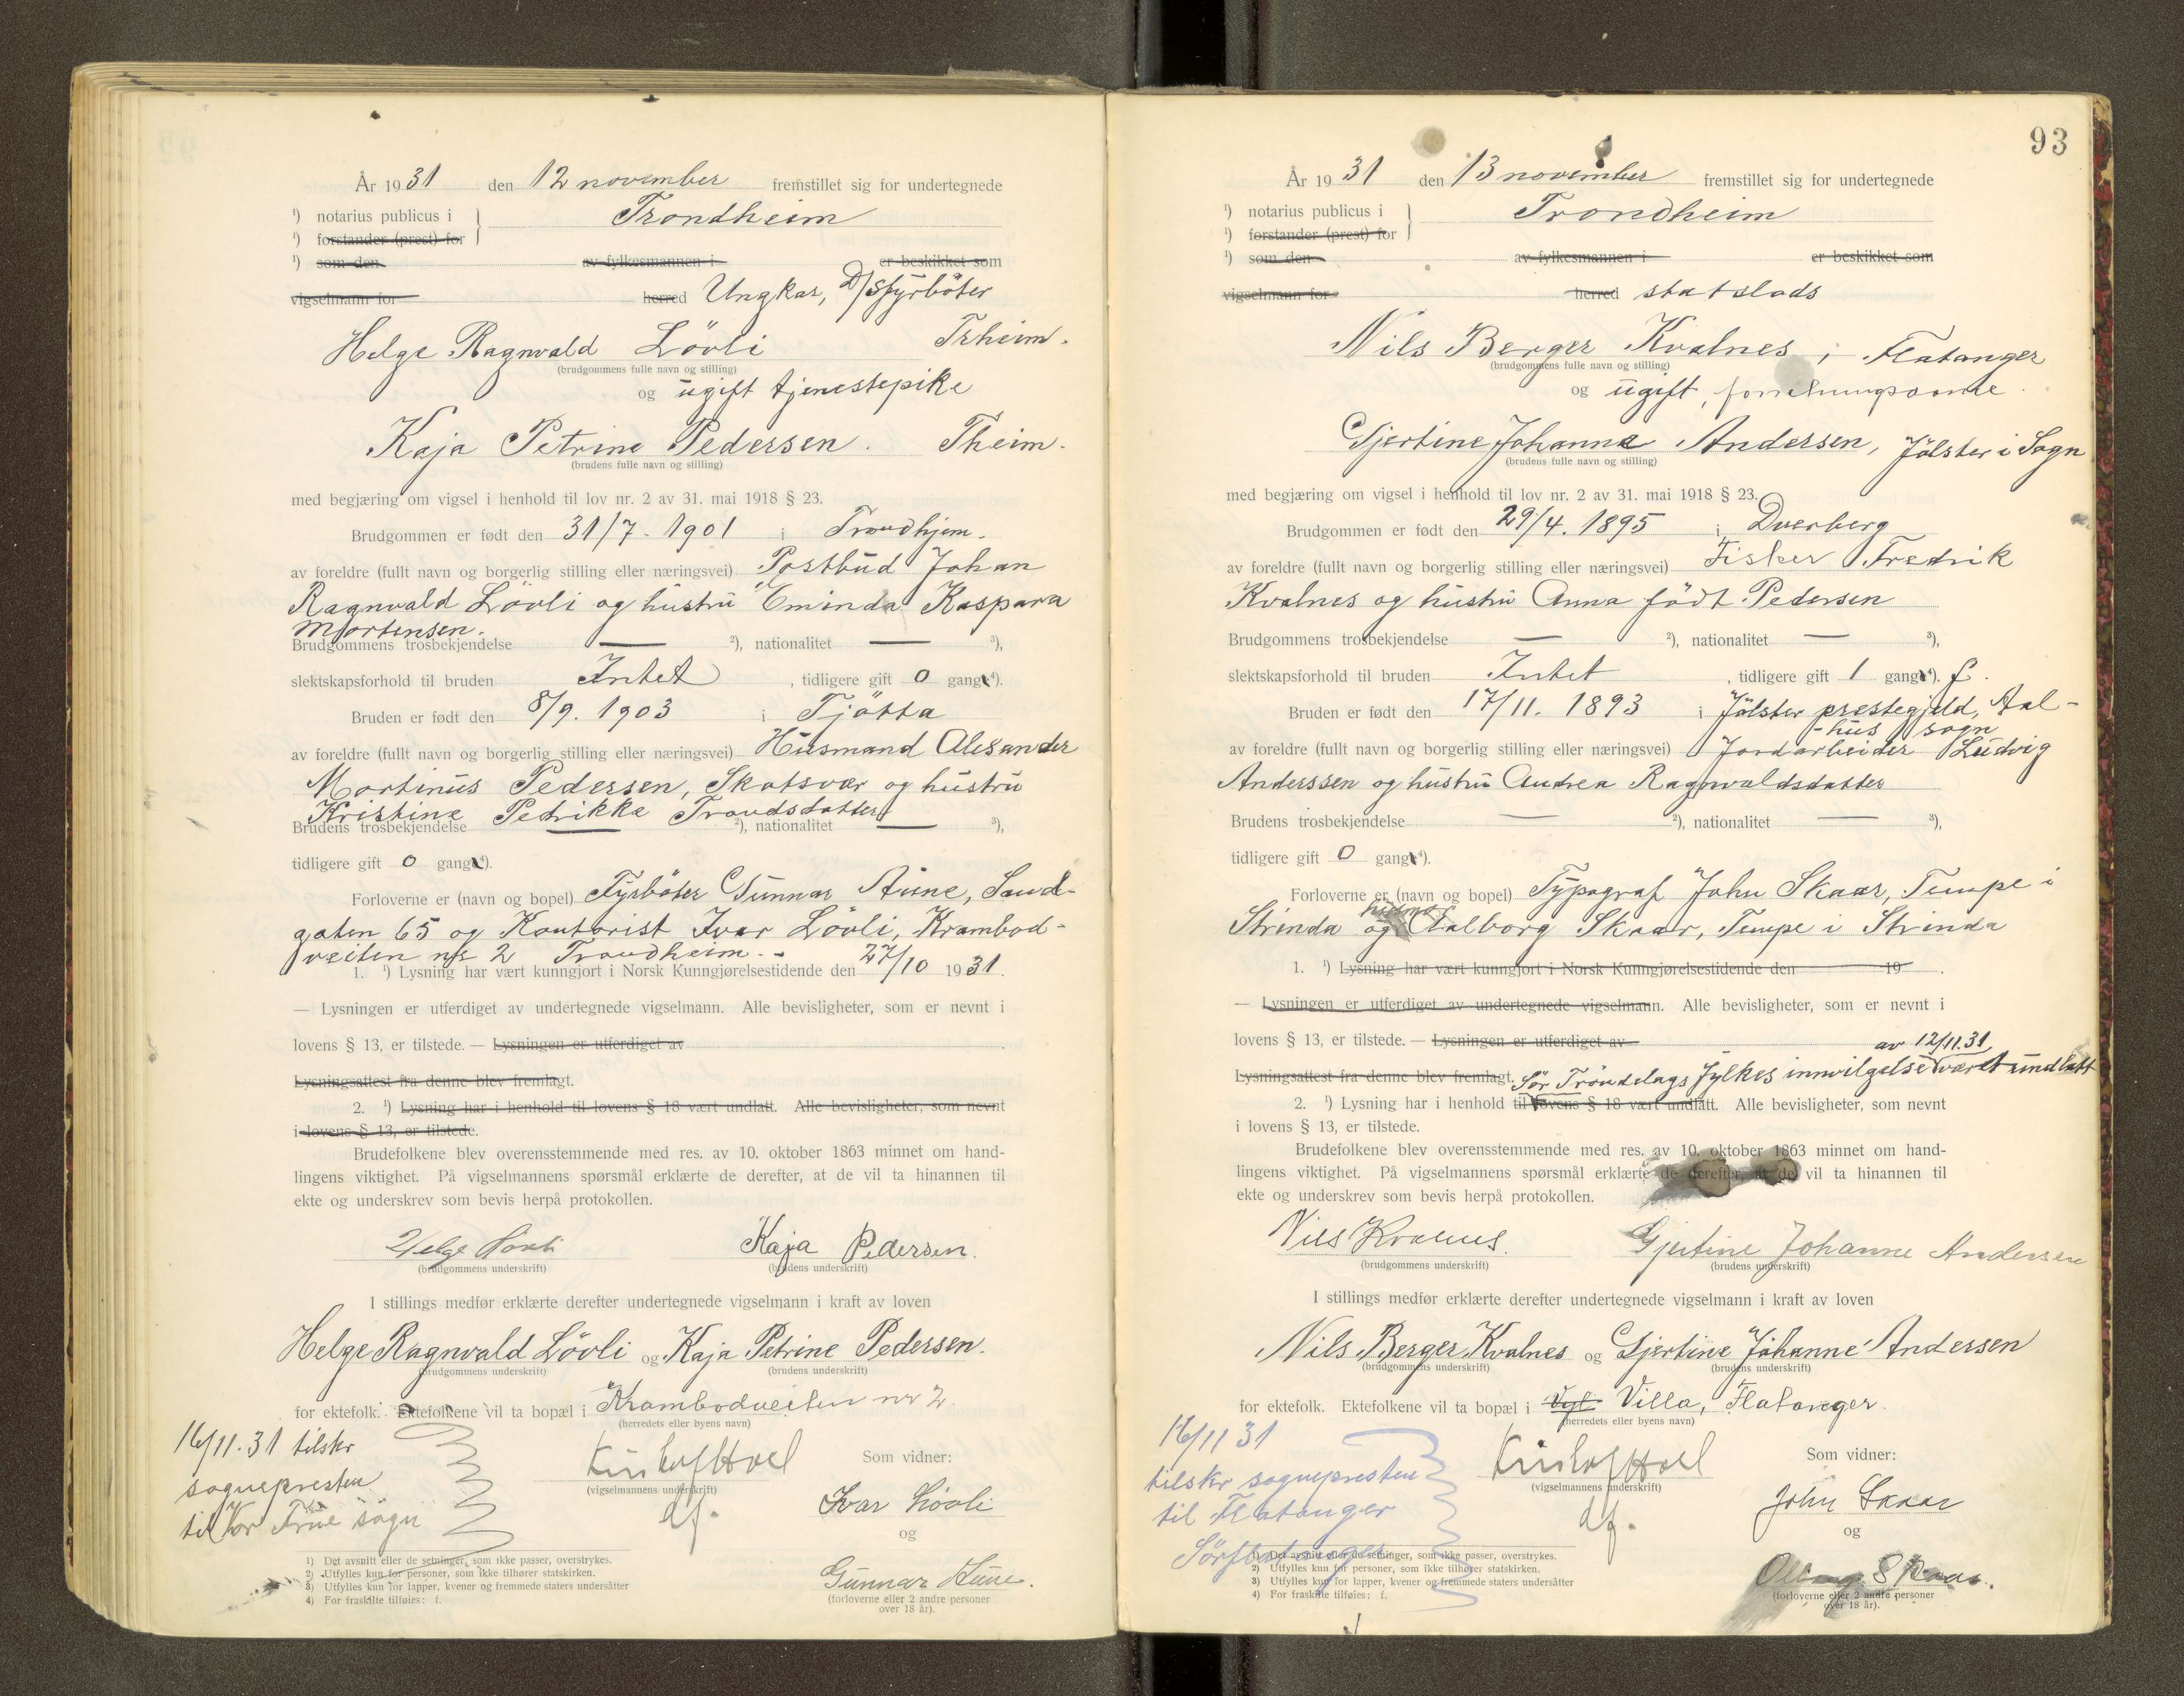 År 1931 den 12 november fremstillet sig for undertegnede
¹) notarius publicus i } Trondheim
¹) forstander (prest) for
¹) som den av fylkesmannen i er beskikket som
vigselmann for herred Ungkar, D/S fyrböter
Helge Ragnvald Lövli Trheim.
(brudgommens fulle navn og stilling)
og ugift tjenestepike
Kaja Petrine Pedersen. Theim.
(brudens fulle navn og stilling)
med begjæring om vigsel i henhold til lov nr. 2 av 31. mai 1918 § 23.
Brudgommen er født den 31/7. 1901 i Trondhjem.
av foreldre (fullt navn og borgerlig stilling eller næringsvei) Postbud Johan
Ragnvald Lövli og hustru Eminda Kaspara
Mortensen.
Brudgommens trosbekjendelse — ²), nationalitet — ³),
slektskapsforhold til bruden Intet, tidligere gift 0 gang ⁴).
Bruden er født den 8/9. 1903 i Tjötta
av foreldre (fullt navn og borgerlig stilling eller næringsvei) Husmand Alexander
Martinus Pedersen, Skatsvær og hustru
Kristine Petrikke Trondsdatter
Brudens trosbekjendelse — ²), nationalitet — ³),
tidligere gift 0 gang ⁴).
Forloverne er (navn og bopel) Fyrböter Gunnar Aune, Sand-
gaten 65 og Kontorist Ivar Lövli, Krambod-
veiten nr 2 Trondheim.-
1. ¹) Lysning har vært kunngjort i Norsk Kunngjørelsestidende den 27/10 1931.
— Lysningen er utferdiget av undertegnede vigselmann. Alle bevisligheter, som er nevnt i
lovens § 13, er tilstede. — Lysningen er utferdiget av
Lysningsattest fra denne blev fremlagt.
2. ¹) Lysning har i henhold til lovens § 18 vært undlatt. Alle bevisligheter, som nevnt
i lovens § 13, er tilstede.
Brudefolkene blev overensstemmende med res. av 10. oktober 1863 minnet om hand-
lingens viktighet. På vigselmannens spørsmål erklærte de derefter, at de vil ta hinannen til
ekte og underskrev som bevis herpå protokollen.
Helge Lövli Kaja Pedersen.
(brudgommens underskrift) (brudens underskrift)
I stillings medfør erklærte derefter undertegnede vigselmann i kraft av loven
Helge Ragnvald Lövli og Kaja Petrine Pedersen.
(brudgommens underskrift) (brudens underskrift)
for ektefolk. Ektefolkene vil ta bopæl i Krambodveiten nr 2
(herredets eller byens navn)
16/11.31 tilskr
sognepresten
til Vor Frue sogn
(vigselmannens underskrift)
Som vidner:
Ivar Lövli
og
Gunnar Aune.
(forloverne eller 2 andre personer
over 18 år).
1) Det avsnitt eller de setninger, som ikke passer, overstrykes.
2) Utfylles kun for personer, som ikke tilhører statskirken.
3) Utfylles kun for lapper, kvener og fremmede staters undersåtter
4) For fraskilte tilføies: f.
93
År 1931 den 13 november fremstillet sig for undertegnede
¹) notarius publicus i } Trondheim
¹) forstander (prest) for
¹) som den av fylkesmannen i er beskikket som
vigselmann for herred statslods
Nils Berger Kvalnes, i Flatanger
(brudgommens fulle navn og stilling)
og ugift, forretningsdame
Gjertine Johanne Andersen, Jölster i Sogn
(brudens fulle navn og stilling)
med begjæring om vigsel i henhold til lov nr. 2 av 31. mai 1918 § 23.
Brudgommen er født den 29/4. 1895 i Dverberg
av foreldre (fullt navn og borgerlig stilling eller næringsvei) Fisker Fredrik
Kvalnes og hustru Anna födt Pedersen
Brudgommens trosbekjendelse — ²), nationalitet — ³),
slektskapsforhold til bruden Intet, tidligere gift 1 gang ⁴). f.
Bruden er født den 17/11. 1893 i Jölster prestegjeld, Aal-
-hus sogn
av foreldre (fullt navn og borgerlig stilling eller næringsvei) Jordarbeider Ludvig
Anderssen og hustru Andrea Ragnvaldsdatter
Brudens trosbekjendelse — ²), nationalitet — ³),
tidligere gift 0 gang ⁴).
Forloverne er (navn og bopel) Typograf John Skaar, Tempe i
Strinda og hustru Aalborg Skaar, Tempe i Strinda
1. ¹) Lysning har vært kunngjort i Norsk Kunngjørelsestidende den 19 .
— Lysningen er utferdiget av undertegnede vigselmann. Alle bevisligheter, som er nevnt i
lovens § 13, er tilstede. — Lysningen er utferdiget av av 12/11.31
Lysningsattest fra denne blev fremlagt. Sör Tröndelags fylkes innvilgelse været undlatt
2. ¹) Lysning har i henhold til lovens § 18 vært undlatt. Alle bevisligheter, som nevnt
i lovens § 13, er tilstede.
Brudefolkene blev overensstemmende med res. av 10. oktober 1863 minnet om hand-
lingens viktighet. På vigselmannens spørsmål erklærte de derefter, at de vil ta hinannen til
ekte og underskrev som bevis herpå protokollen.
Nils Kvalnes. Gjertine Johanne Andersen
(brudgommens underskrift) (brudens underskrift)
I stillings medfør erklærte derefter undertegnede vigselmann i kraft av loven
Nils Berger Kvalnes og Gjertine Johanne Andersen
(brudgommens underskrift) (brudens underskrift)
for ektefolk. Ektefolkene vil ta bopæl i Villa, Flatanger.
(herredets eller byens navn)
16/11 31
tilskr sognepresten
til Flatanger
Sörflatanger
(vigselmannens underskrift)
Som vidner:
John Skaar
og
Skaar.
(forloverne eller 2 andre personer
over 18 år).
1) Det avsnitt eller de setninger, som ikke passer, overstrykes.
2) Utfylles kun for personer, som ikke tilhører statskirken.
3) Utfylles kun for lapper, kvener og fremmede staters undersåtter
4) For fraskilte tilføies: f.